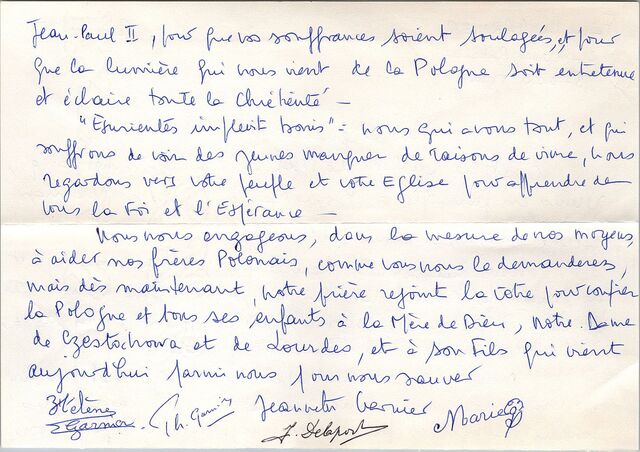 Jean-Paul II, pour que vos souffrances soient soulagées, et pour
que la lumière qui nous vient de la Pologne soit entretenue
et éclaire toute la Chrétienté –
"Esurientes implevit bonis" = nous qui avons tout, et qui
souffrons de voir des jeunes manquer de raisons de vivre, nous
regardons vers votre peuple et votre Eglise pour apprendre de
vous la Foi et l'Espérance –
Nous nous engageons, dans la mesure de nos moyens,
à aider nos frères Polonais, comme vous nous le demanderez,
mais dès maintenant, notre prière rejoint la vôtre pour confier
la Pologne et tous ses enfants à la Mère de Dieu, Notre-Dame
de Czestochowa et de Lourdes, et à son Fils qui vient
aujourd'hui parmi nous pour nous sauver
Hélène Jeannette Marie
J. Delaporte